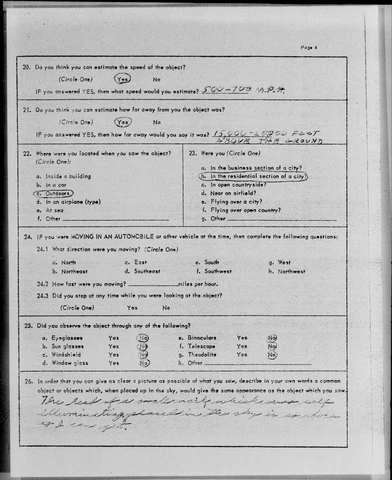 Page 4
20. Do you think you can estimate the speed of the object?
(Circle One) Yes No
IF you answered YES, then what speed would you estimate? 500-700 M.P.H.
21. Do you think you can estimate how far away from you the object was?
(Circle One) Yes No
IF you answered YES, then how far away would you say it was? FEET
ABOVE THE GROUND
22. Where were you located when you saw the object?
(Circle One):
a. Inside a building
b. In a car
c. Outdoors
d. In an airplane (type)
e. At sea
f. Other
23. Were you (Circle One)
a. In the business section of a city?
b. In the residential section of a city?
c. In open countryside?
d. Near an airfield?
e. Flying over a city?
f. Flying over open country?
g. Other
24. IF you were MOVING IN AN AUTOMOBILE or other vehicle at the time, then complete the following questions:
24.1 What direction were you moving? (Circle One)
a. North c. East e. South g. West
b. Northeast d. Southeast f. Southwest h. Northwest
24.2 How fast were you moving? miles per hour.
24.3 Did you stop at any time while you were looking at the object?
(Circle One) Yes No
25. Did you observe the object through any of the following?
a. Eyeglasses Yes No e. Binoculars Yes No
b. Sun glasses Yes No f. Telescope Yes No
c. Windshield Yes No g. Theodolite Yes No
d. Window glass Yes No h. Other
26. In order that you can give as clear a picture as possible of what you saw, describe in your own words a common
object or objects which, when placed up in the sky, would give the same appearance as the object which you saw.
The head of a small nail, which was self
illuminating, placed in the sky is as close
as I can get.